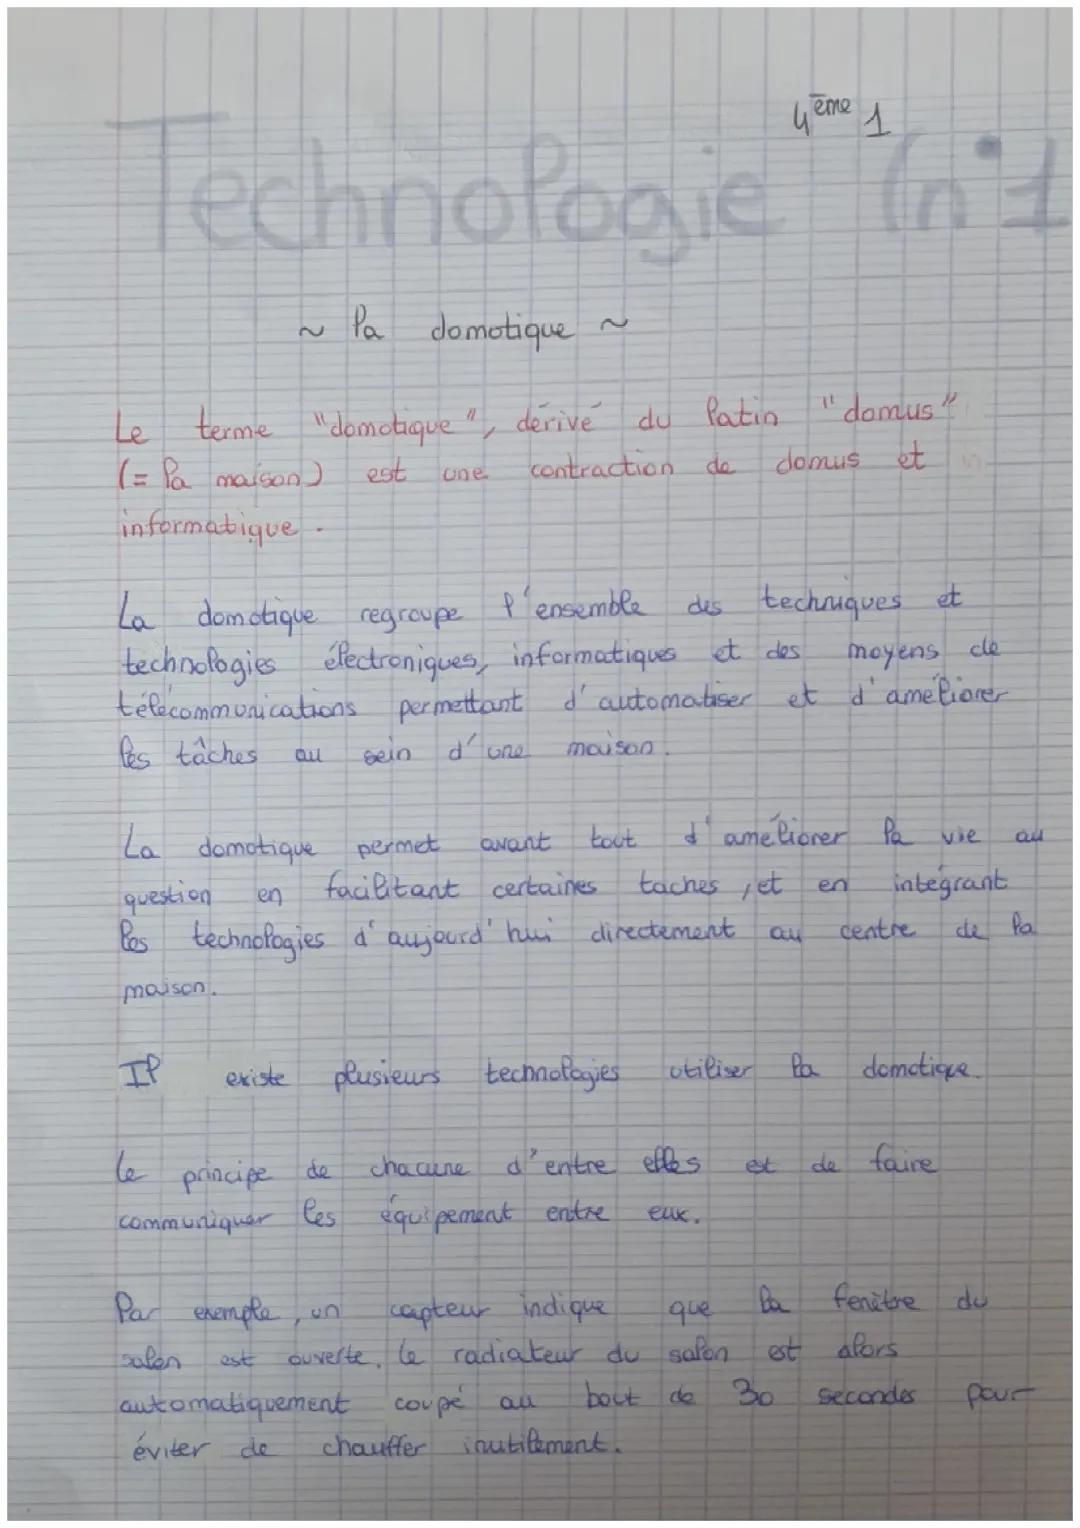 4ème 1
Technologie (n°1
~ la domotique ~
Le terme "domotique", dérivé du latin "domus"
(= la maison) est une contraction de domus et
informatique.
La domotique regroupe l'ensemble des techniques et
technologies électroniques, informatiques et des moyens de
télécommunications permettant d'automatiser et d'améliorer
les tâches au sein d'une maison.
La domotique permet avant tout d'améliorer la vie au
question en facilitant certaines taches, et en intégrant
les technologies d'aujourd'hui directement au centre de la
maison.
Il existe plusieurs technologies utiliser la domotique.
Le principe de chacune d'entre elles est de faire
communiquer les équipement entre eux.
Par exemple, un capteur indique que la fenêtre du
salon est ouverte, le radiateur du salon est alors
automatiquement coupé au bout de 30 secondes pour
éviter de chauffer inutilement.